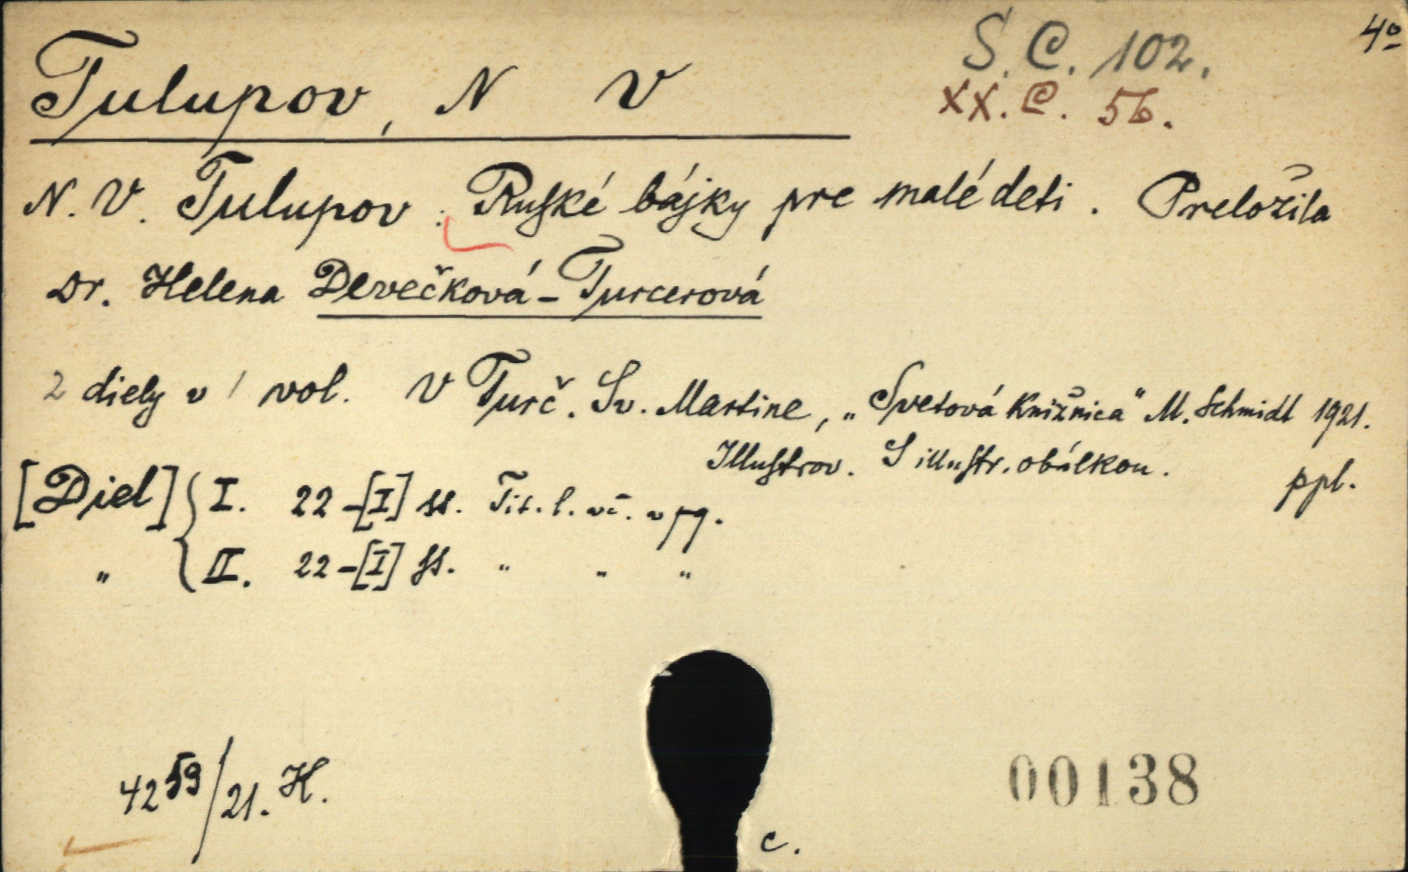 4º
S. C. 102.
XX. C. 56.
Tulupov, N V
N. V. Tulupov: Ruské bájky pre malé deti. Preložila
Dr. Helena Devečková-Turcerová
2 diely v 1 vol. V Turč. Sv. Martine, „Svetová Knižnica" M. Schmidt 1921.
Illustrov. S illustr. obálkou. ppl.
[Diel] { I. 22-[I] ss. Tit. l. vč. v pg.
„ { II. 22-[I] ss. „ „ „
4259/21. H.
00138
c.